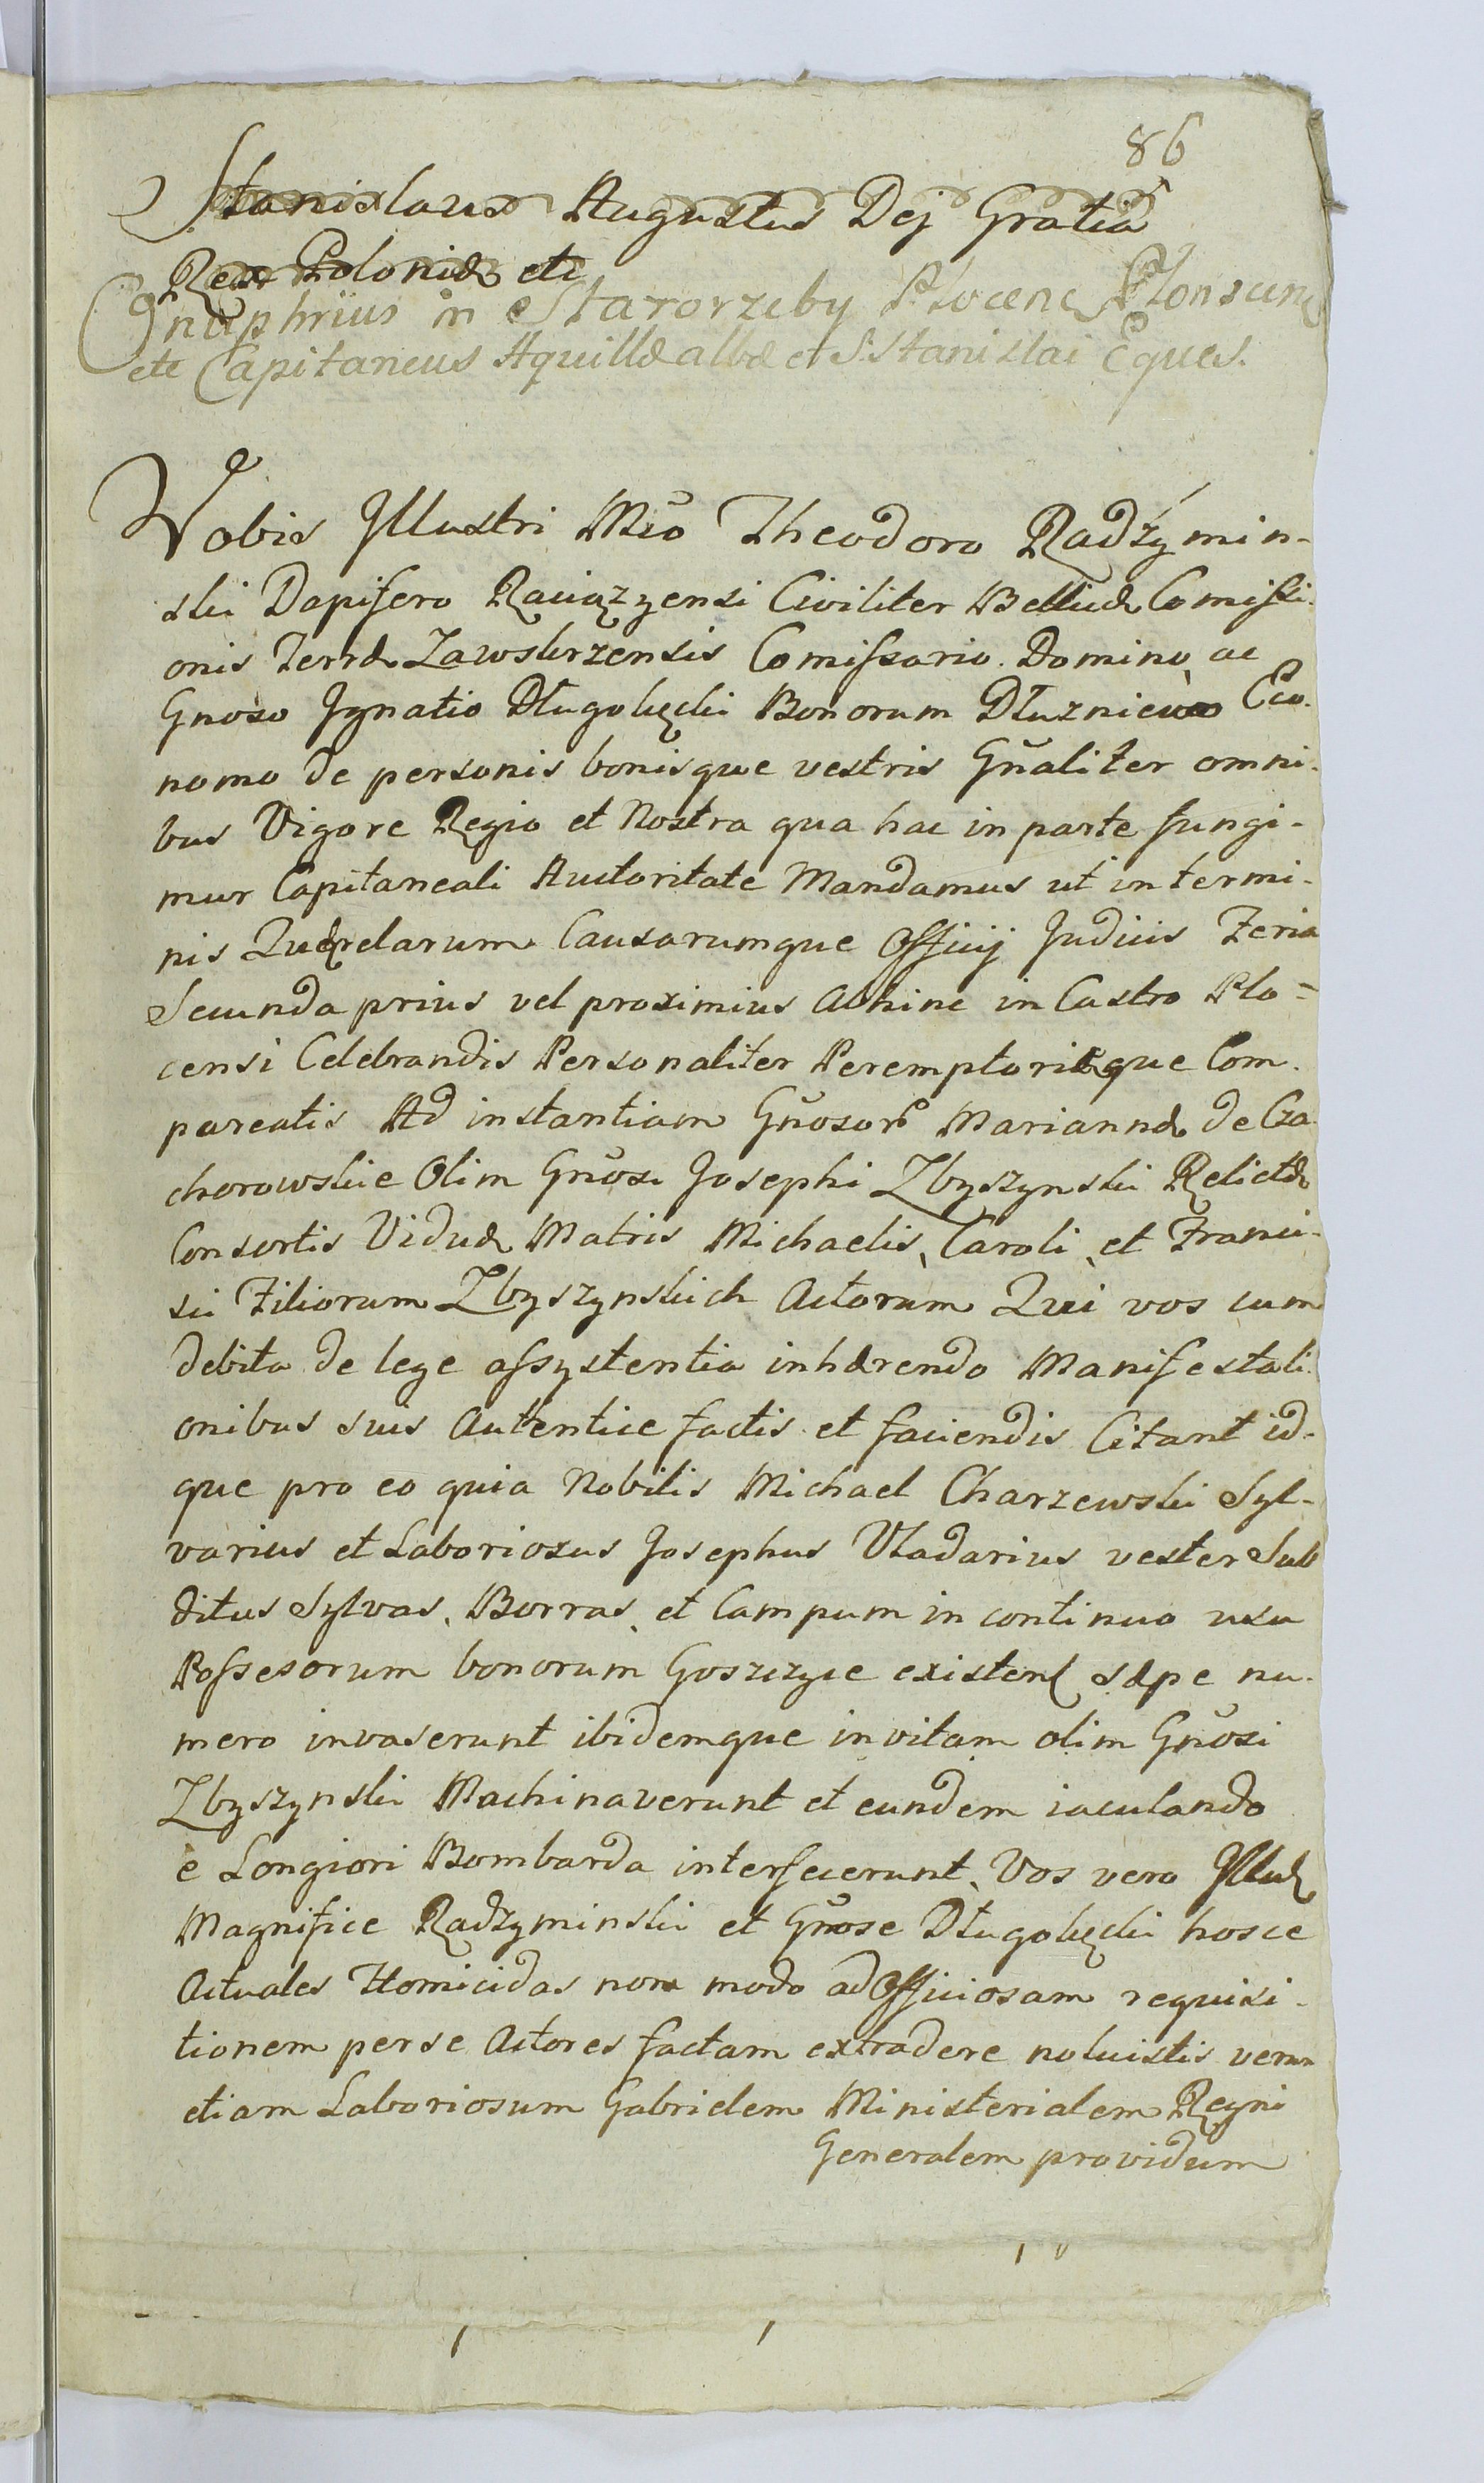 86
Stanislaus Augustus Dej Gratia
Rex Poloniæ etc
Onuphrius in Starorzeby Plocenę Plonscenę
etc Capitaneus Aquillæ albæ et S: Stanislai Eques.
Vobis Jllustri Mco Theodoro Radżymin-
ski Dapifero Raciązyensi Civiliter Bellicæ Comissi-
onis Terræ Zawskrzensis Comissario. Domino ac
Gnoso Jgnatio Długołęcki Bonorum Dłuzniewo Eco-
nomo de personis bonisque vestris Gnaliter omni-
bus Vigore Regio et Nostra qua hac in parte fungi-
mur Capitaneali Auctoritate Mandamus ut in termi-
nis Quærelarum Causarumque Officij Judiciis Feria
Secunda prius vel proximius Abhinc in Castro Plo=
censi Celebrandis Personaliter Peremptorieque Com-
pareatis Ad instantiam Gnosor Mariannæ de Cza-
chorowskie Olim Gnosi Josephi Zbyszynski Relictæ
Consortis Viduæ Matris Michaelis, Caroli, et Franci-
sci Filiorum Zbyszynskich Actorum Qui vos cum
debita de lege assystentia inhærendo Manifestati-
onibus suis Autentice factis et faciendis Citant id-
que pro eo quia Nobilis Michael Charzewski Syl-
varius et Laboriosus Josephus Vladarius vester Sub
ditus Sylvas, Borras, et Campum in continuo usu
Possesorum bonorum Goszczyce existenę sæpe nu-
mero invaserunt ibidemque in vitam olim Gnosi
Zbyszynski Machinaverunt et eundem iaculando
è Longiori Bombarda interfecerunt, Vos vero Jlluę
Magnifice Radzyminski et Gnose Długołęcki hosce
Actuales Homicidas non modo ad Officiosam requisi-
tionem per se Actores factam extradere noluistis verum
etiam Laboriosum Gabrielem Ministerialem Regni
Generalem providum